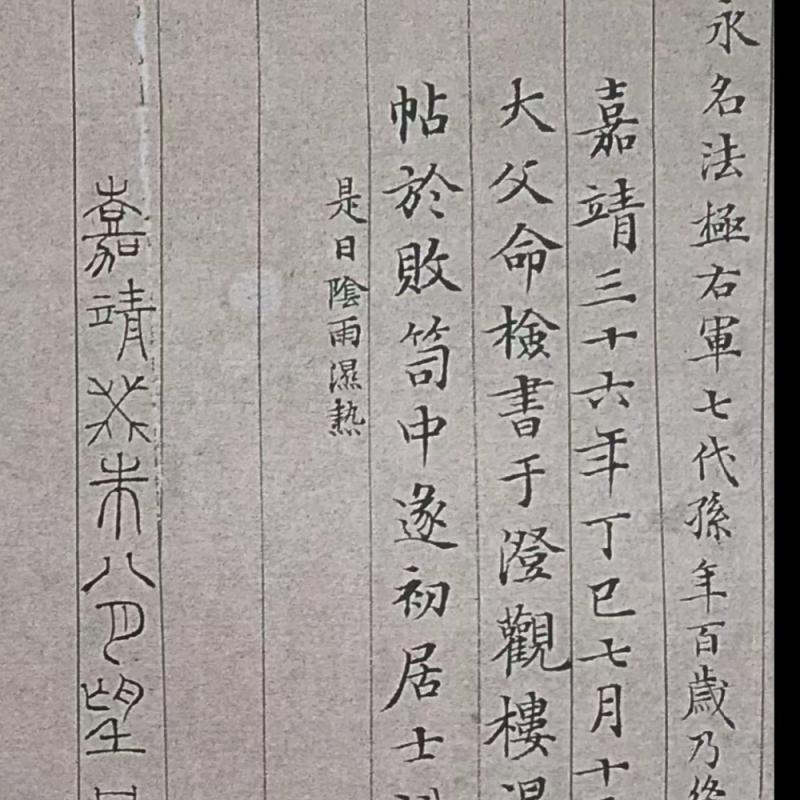 永名法極右軍七代孫年百歲乃終
嘉靖三十六年丁巳七月十
大父命檢書于澄觀樓
帖於敗笥中遂初居士
是日陰雨濕熱
嘉靖癸未八月望